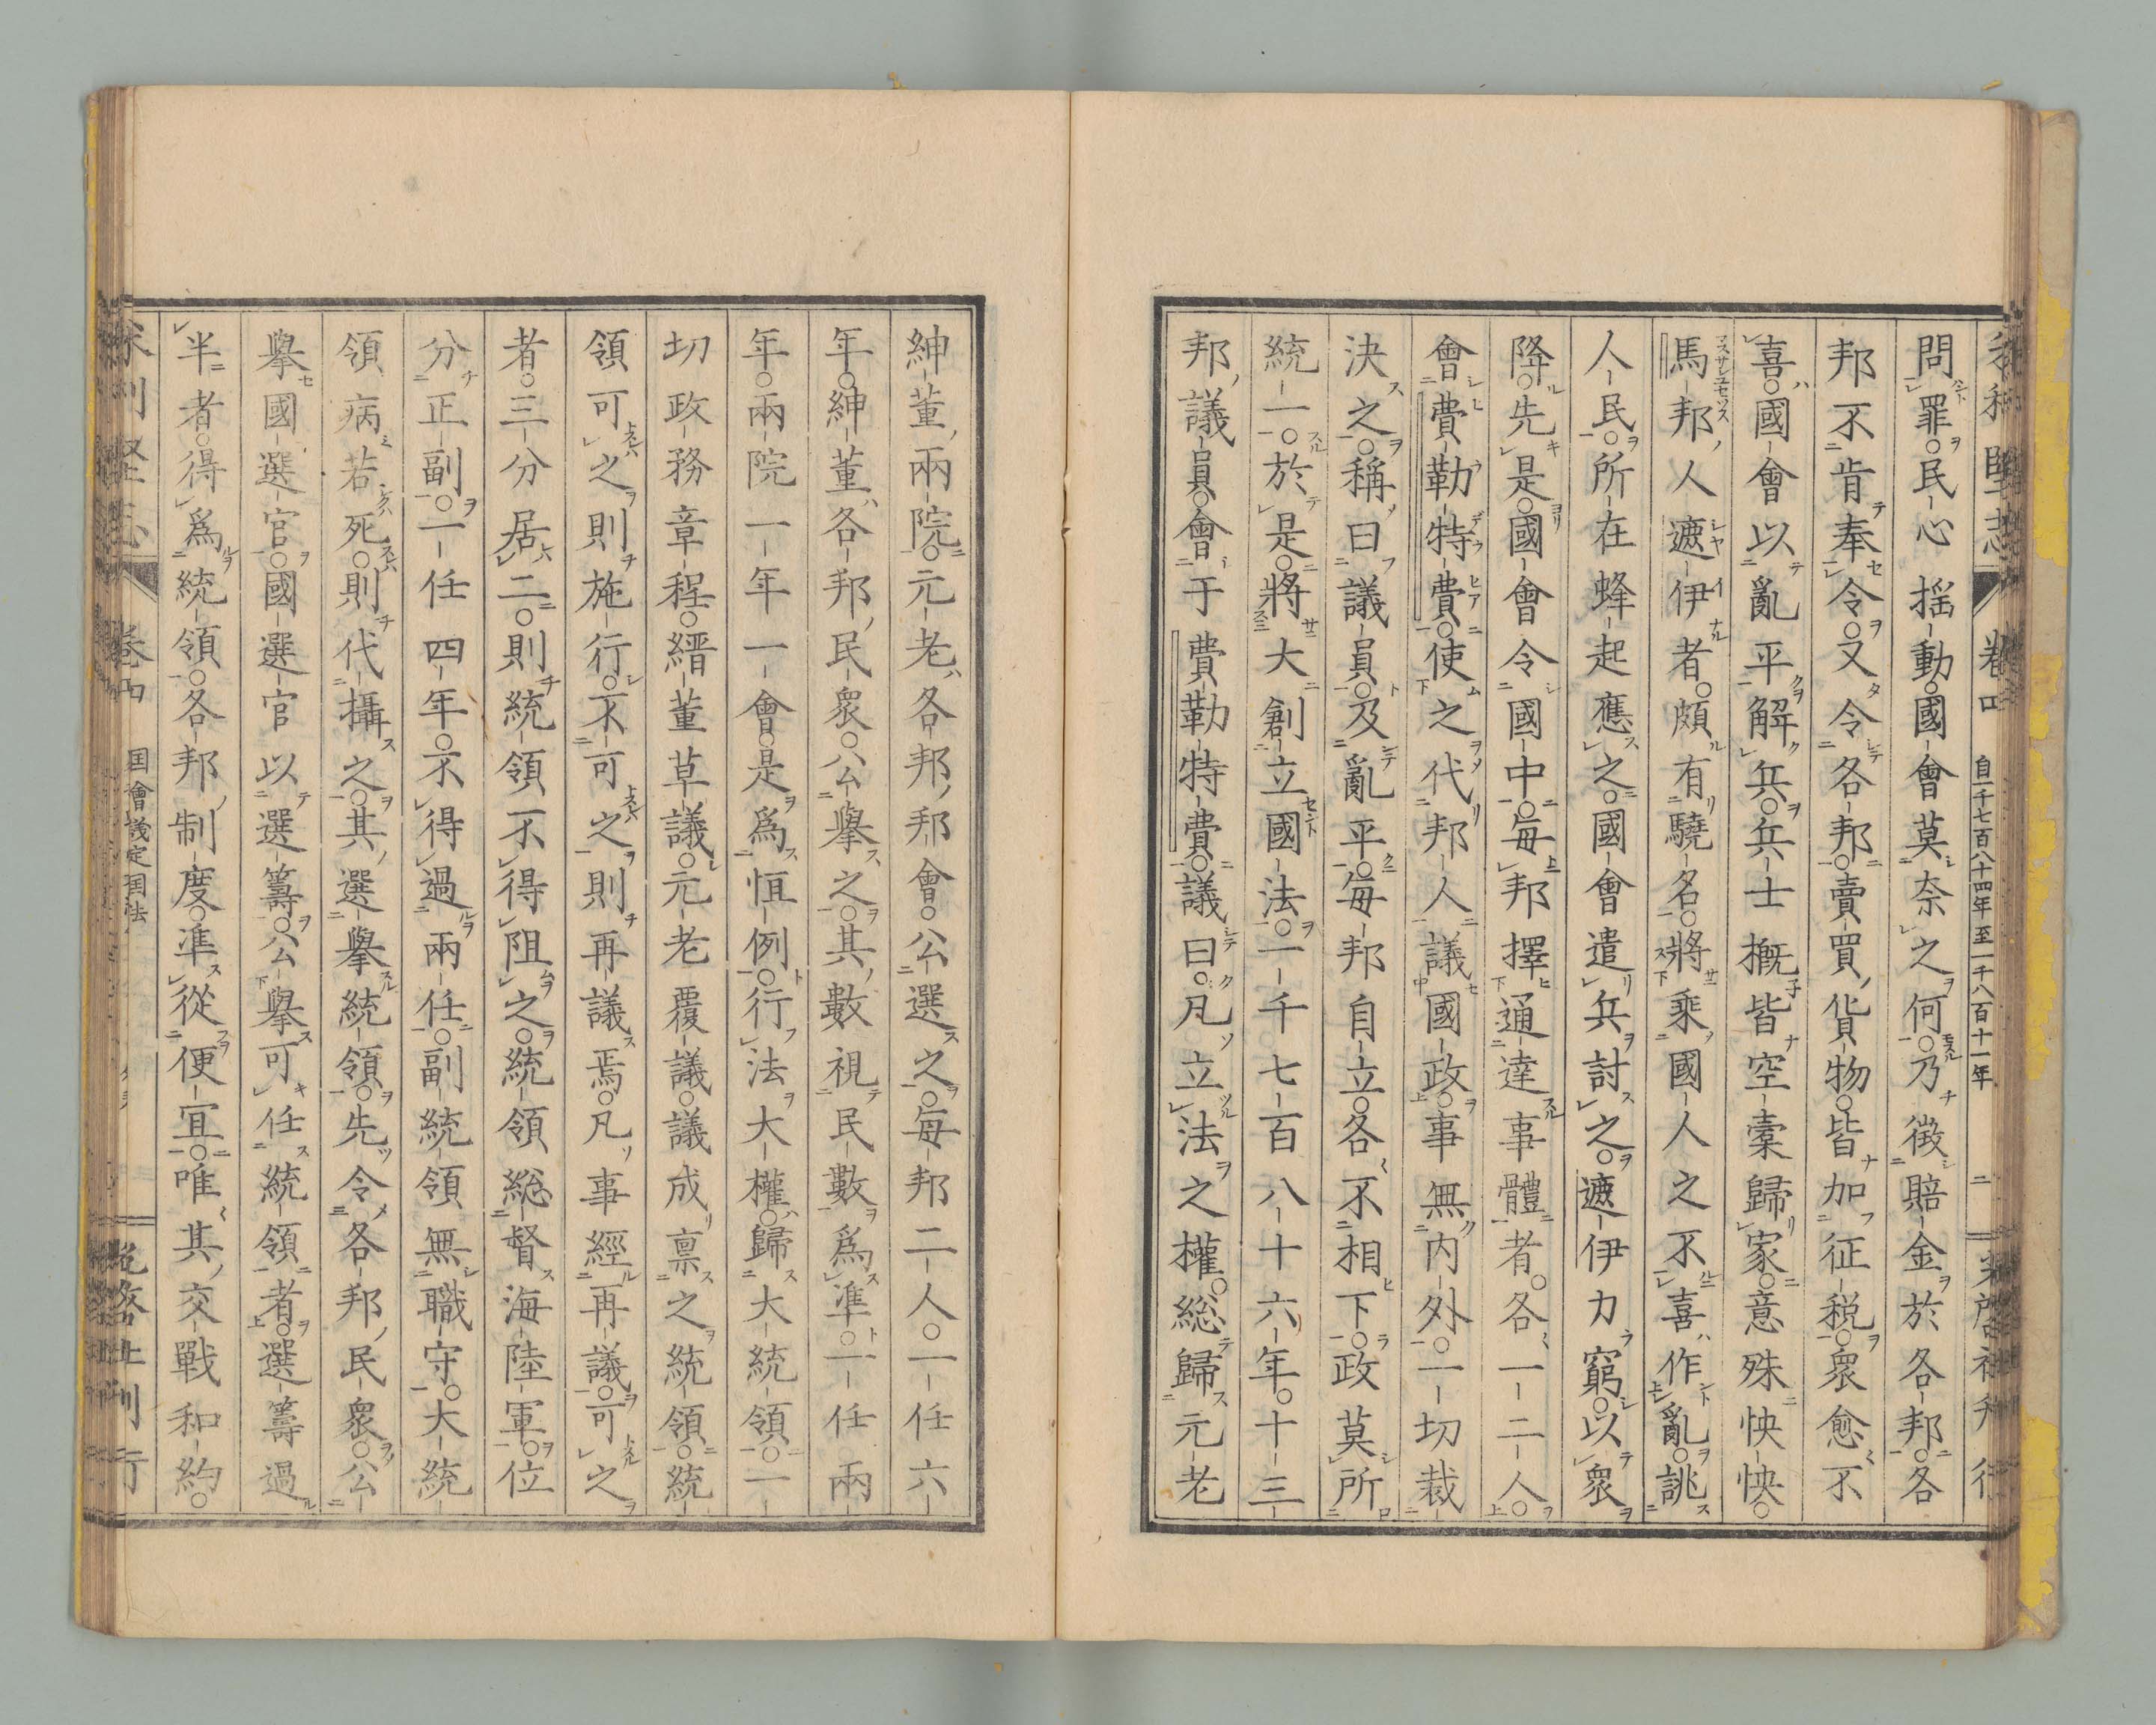 卷四 自千七百八十四年至一千八百十一年 二
問罪。民心搖動。國會莫奈之何。乃徵賠金於各邦。各
邦不肯奉令。又令各邦。賣買貨物。皆加征稅。衆愈不
喜。國會以亂平解兵。兵士概皆空橐歸家。意殊怏怏。
馬邦人遮伊者。頗有驍名。將乘國人之不喜作亂。誂
人民。所在蜂起應之。國會遣兵討之。遮伊力窮。以衆
降。先是。國會令國中。每邦擇通達事體者。各一二人。
會費勒特費。使之代邦人議國政。事無內外。一切裁
決之。稱曰議員。及亂平。每邦自立。各不相下。政莫所
統一。於是。將大創立國法。一千七百八十六年。十三
邦議員。會于費勒特費。議曰。凡立法之權。總歸元老
紳董兩院。元老各邦邦會。公選之。每邦二人。一任六
年。紳董各邦民衆。公擧之。其數視民數爲準。一任兩
年。兩院一年一會。是爲恒例。行法大權。歸大統領。一
切政務章程。縉董草議。元老覆議。議成稟之統領。統
領可之則施行。不可之則再議焉。凡事經再議。可之
者。三分居二。則統領不得阻之。統領総督海陸軍。位
分正副。一任四年。不得過兩任。副統領無職守。大統
領病若死。則代攝之。其選擧統領。先令各邦民衆。公
擧國選官。國選官以選籌。公擧可任統領者。選籌過
半者。得爲統領。各邦制度。準從便宜。唯其交戰和約。
卷四 国會議定国法